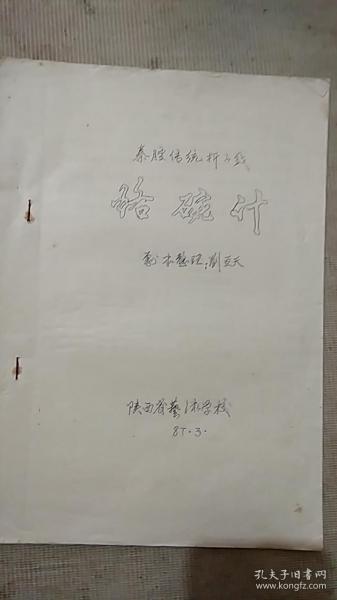 秦腔传统折子戏
借硙计
剧本整理：刘亚天
陕西省艺术学校
87.3.
孔夫子旧书网
www.kongfz.com